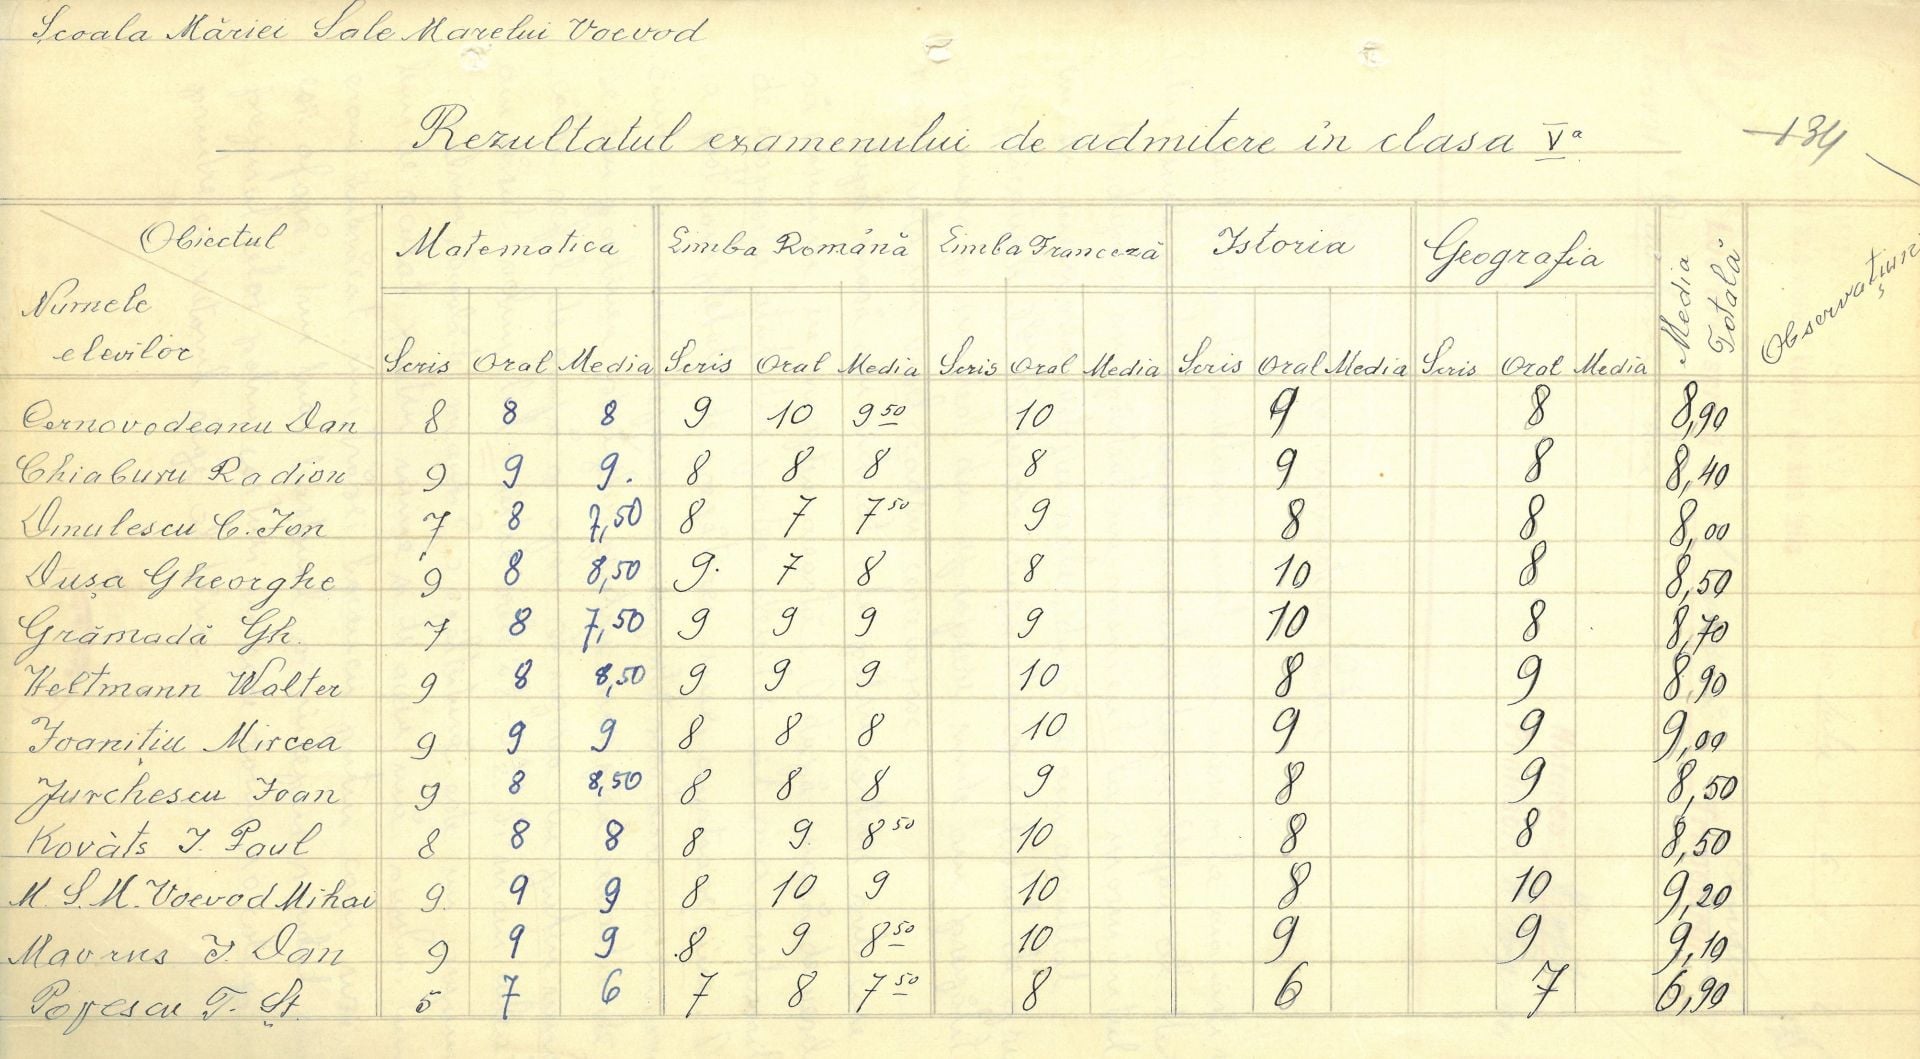 Școala Măriei Sale Marelui Voevod
Rezultatul examenului de admitere în clasa Vª
134
Obiectul Matematica Limba Română Limba Franceză Istoria Geografia Media Totală Observațiuni
Numele elevilor Scris Oral Media Scris Oral Media Scris Oral Media Scris Oral Media Scris Oral Media
Cernovodeanu Dan 8 8 8 9 10 9 50 10 9 8 8,90
Chiaburu Radion 9 9 9. 8 8 8 8 9 8 8,40
Dinulescu C. Ion 7 8 7,50 8 7 7 50 9 8 8 8,00
Dușa Gheorghe 9 8 8,50 9. 7 8 8 10 8 8,50
Grămadă Gh. 7 8 7,50 9 9 9 9 10 8 8,70
Heltmann Walter 9 8 8,50 9 9 9 10 8 9 8,90
Ioanițiu Mircea 9 9 9 8 8 8 10 9 9 9,00
Jurchescu Ioan 9 8 8,50 8 8 8 9 8 9 8,50
Kovàts I. Paul 8 8 8 8 9 8 50 10 8 8 8,50
M. S. M. Voevod Mihai 9 9 9 8 10 9 10 8 10 9,20
Mavrus I. Dan 9 9 9 8 9 8 50 10 9 9 9,10
Popescu T. Șt. 5 7 6 7 8 7 50 8 6 7 6,90